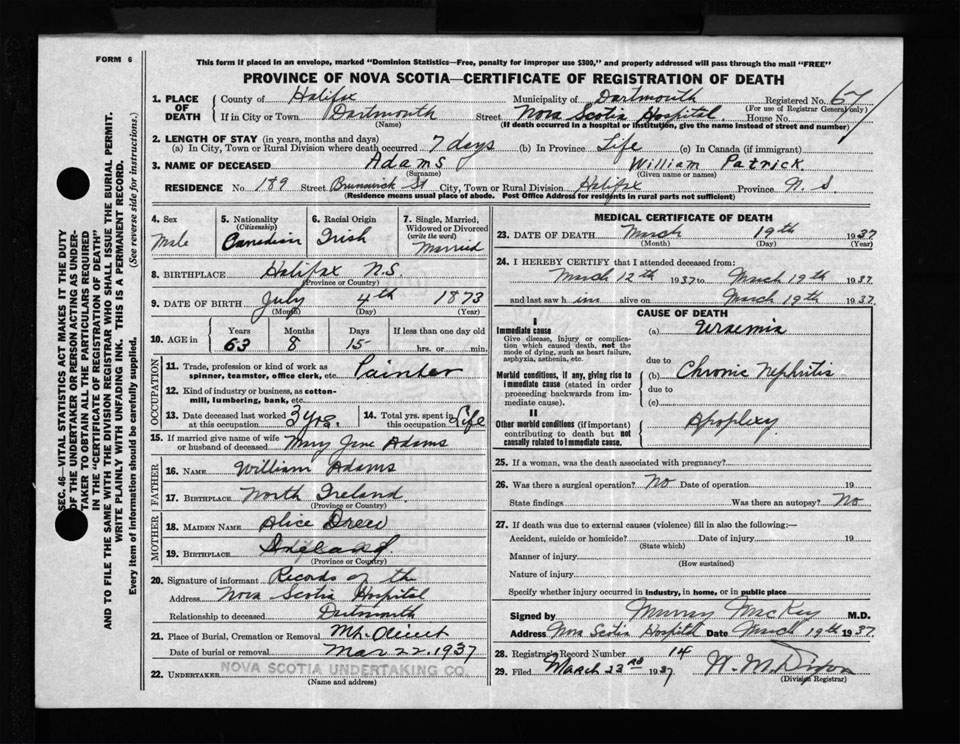 FORM 6
This form if placed in an envelope, marked "Dominion Statistics—Free, penalty for improper use $300," and properly addressed will pass through the mail "FREE"
PROVINCE OF NOVA SCOTIA—CERTIFICATE OF REGISTRATION OF DEATH
SEC. 46—VITAL STATISTICS ACT MAKES IT THE DUTY
OF THE UNDERTAKER OR PERSON ACTING AS UNDER-
TAKER TO OBTAIN ALL THE PARTICULARS REQUIRED
IN THE "CERTIFICATE OF REGISTRATION OF DEATH"
AND TO FILE THE SAME WITH THE DIVISION REGISTRAR WHO SHALL ISSUE THE BURIAL PERMIT.
WRITE PLAINLY WITH UNFADING INK. THIS IS A PERMANENT RECORD.
Every item of information should be carefully supplied. (See reverse side for instructions.)
1. PLACE OF DEATH County of Halifax Municipality of Dartmouth Registered No. 67
(For use of Registrar General only)
If in City or Town Dartmouth Street Nova Scotia Hospital House No.
(Name) (If death occurred in a hospital or institution, give the name instead of street and number)
2. LENGTH OF STAY (in years, months and days)
(a) In City, Town or Rural Division where death occurred 7 days (b) In Province Life (c) In Canada (if immigrant)
3. NAME OF DECEASED Adams William Patrick
(Surname) (Given name or names)
RESIDENCE No. 189 Street Brunswick St City, Town or Rural Division Halifax Province N. S
(Residence means usual place of abode. Post Office Address for residents in rural parts not sufficient)
4. Sex Male
5. Nationality (Citizenship) Canadian
6. Racial Origin Irish
7. Single, Married, Widowed or Divorced (write the word) Married
8. BIRTHPLACE Halifax N.S.
(Province or Country)
9. DATE OF BIRTH July 4th 1873
(Month) (Day) (Year)
10. AGE in Years 63 Months 8 Days 15 If less than one day old hrs. or min.
OCCUPATION
11. Trade, profession or kind of work as spinner, teamster, office clerk, etc. Painter
12. Kind of industry or business, as cotton-mill, lumbering, bank, etc.
13. Date deceased last worked at this occupation 3 yrs.
14. Total yrs. spent in this occupation Life
15. If married give name of wife or husband of deceased Mary Jane Adams
FATHER
16. NAME William Adams
17. BIRTHPLACE North Ireland.
(Province or Country)
MOTHER
18. MAIDEN NAME Alice Drew
19. BIRTHPLACE Ireland.
(Province or Country)
20. Signature of informant Records of the
Address Nova Scotia Hospital
Relationship to deceased Dartmouth
21. Place of Burial, Cremation or Removal Mt. Olivet
Date of burial or removal Mar 22. 1937
22. UNDERTAKER NOVA SCOTIA UNDERTAKING CO.
(Name and address)
MEDICAL CERTIFICATE OF DEATH
23. DATE OF DEATH March 19th 1937
(Month) (Day) (Year)
24. I HEREBY CERTIFY that I attended deceased from:
March 12th 1937 to March 19th 1937.
and last saw h im alive on March 19th 1937.
CAUSE OF DEATH
I
Immediate cause
Give disease, injury or complication which caused death, not the mode of dying, such as heart failure, asphyxia, asthenia, etc.
(a) Uraemia
due to
Morbid conditions, if any, giving rise to immediate cause (stated in order proceeding backwards from immediate cause).
(b) Chronic Nephritis
due to
(c)
II
Other morbid conditions (if important) contributing to death but not causally related to immediate cause.
Apoplexy
25. If a woman, was the death associated with pregnancy?
26. Was there a surgical operation? No Date of operation 19
State findings Was there an autopsy? No
27. If death was due to external causes (violence) fill in also the following:—
Accident, suicide or homicide? Date of injury 19
(State which)
Manner of injury
(How sustained)
Nature of injury
Specify whether injury occurred in industry, in home, or in public place
Signed by Murray MacKay M.D.
Address Nova Scotia Hospital Date March 19th 1937.
28. Registrar's Record Number 14
29. Filed March 23rd 1937
(Division Registrar)